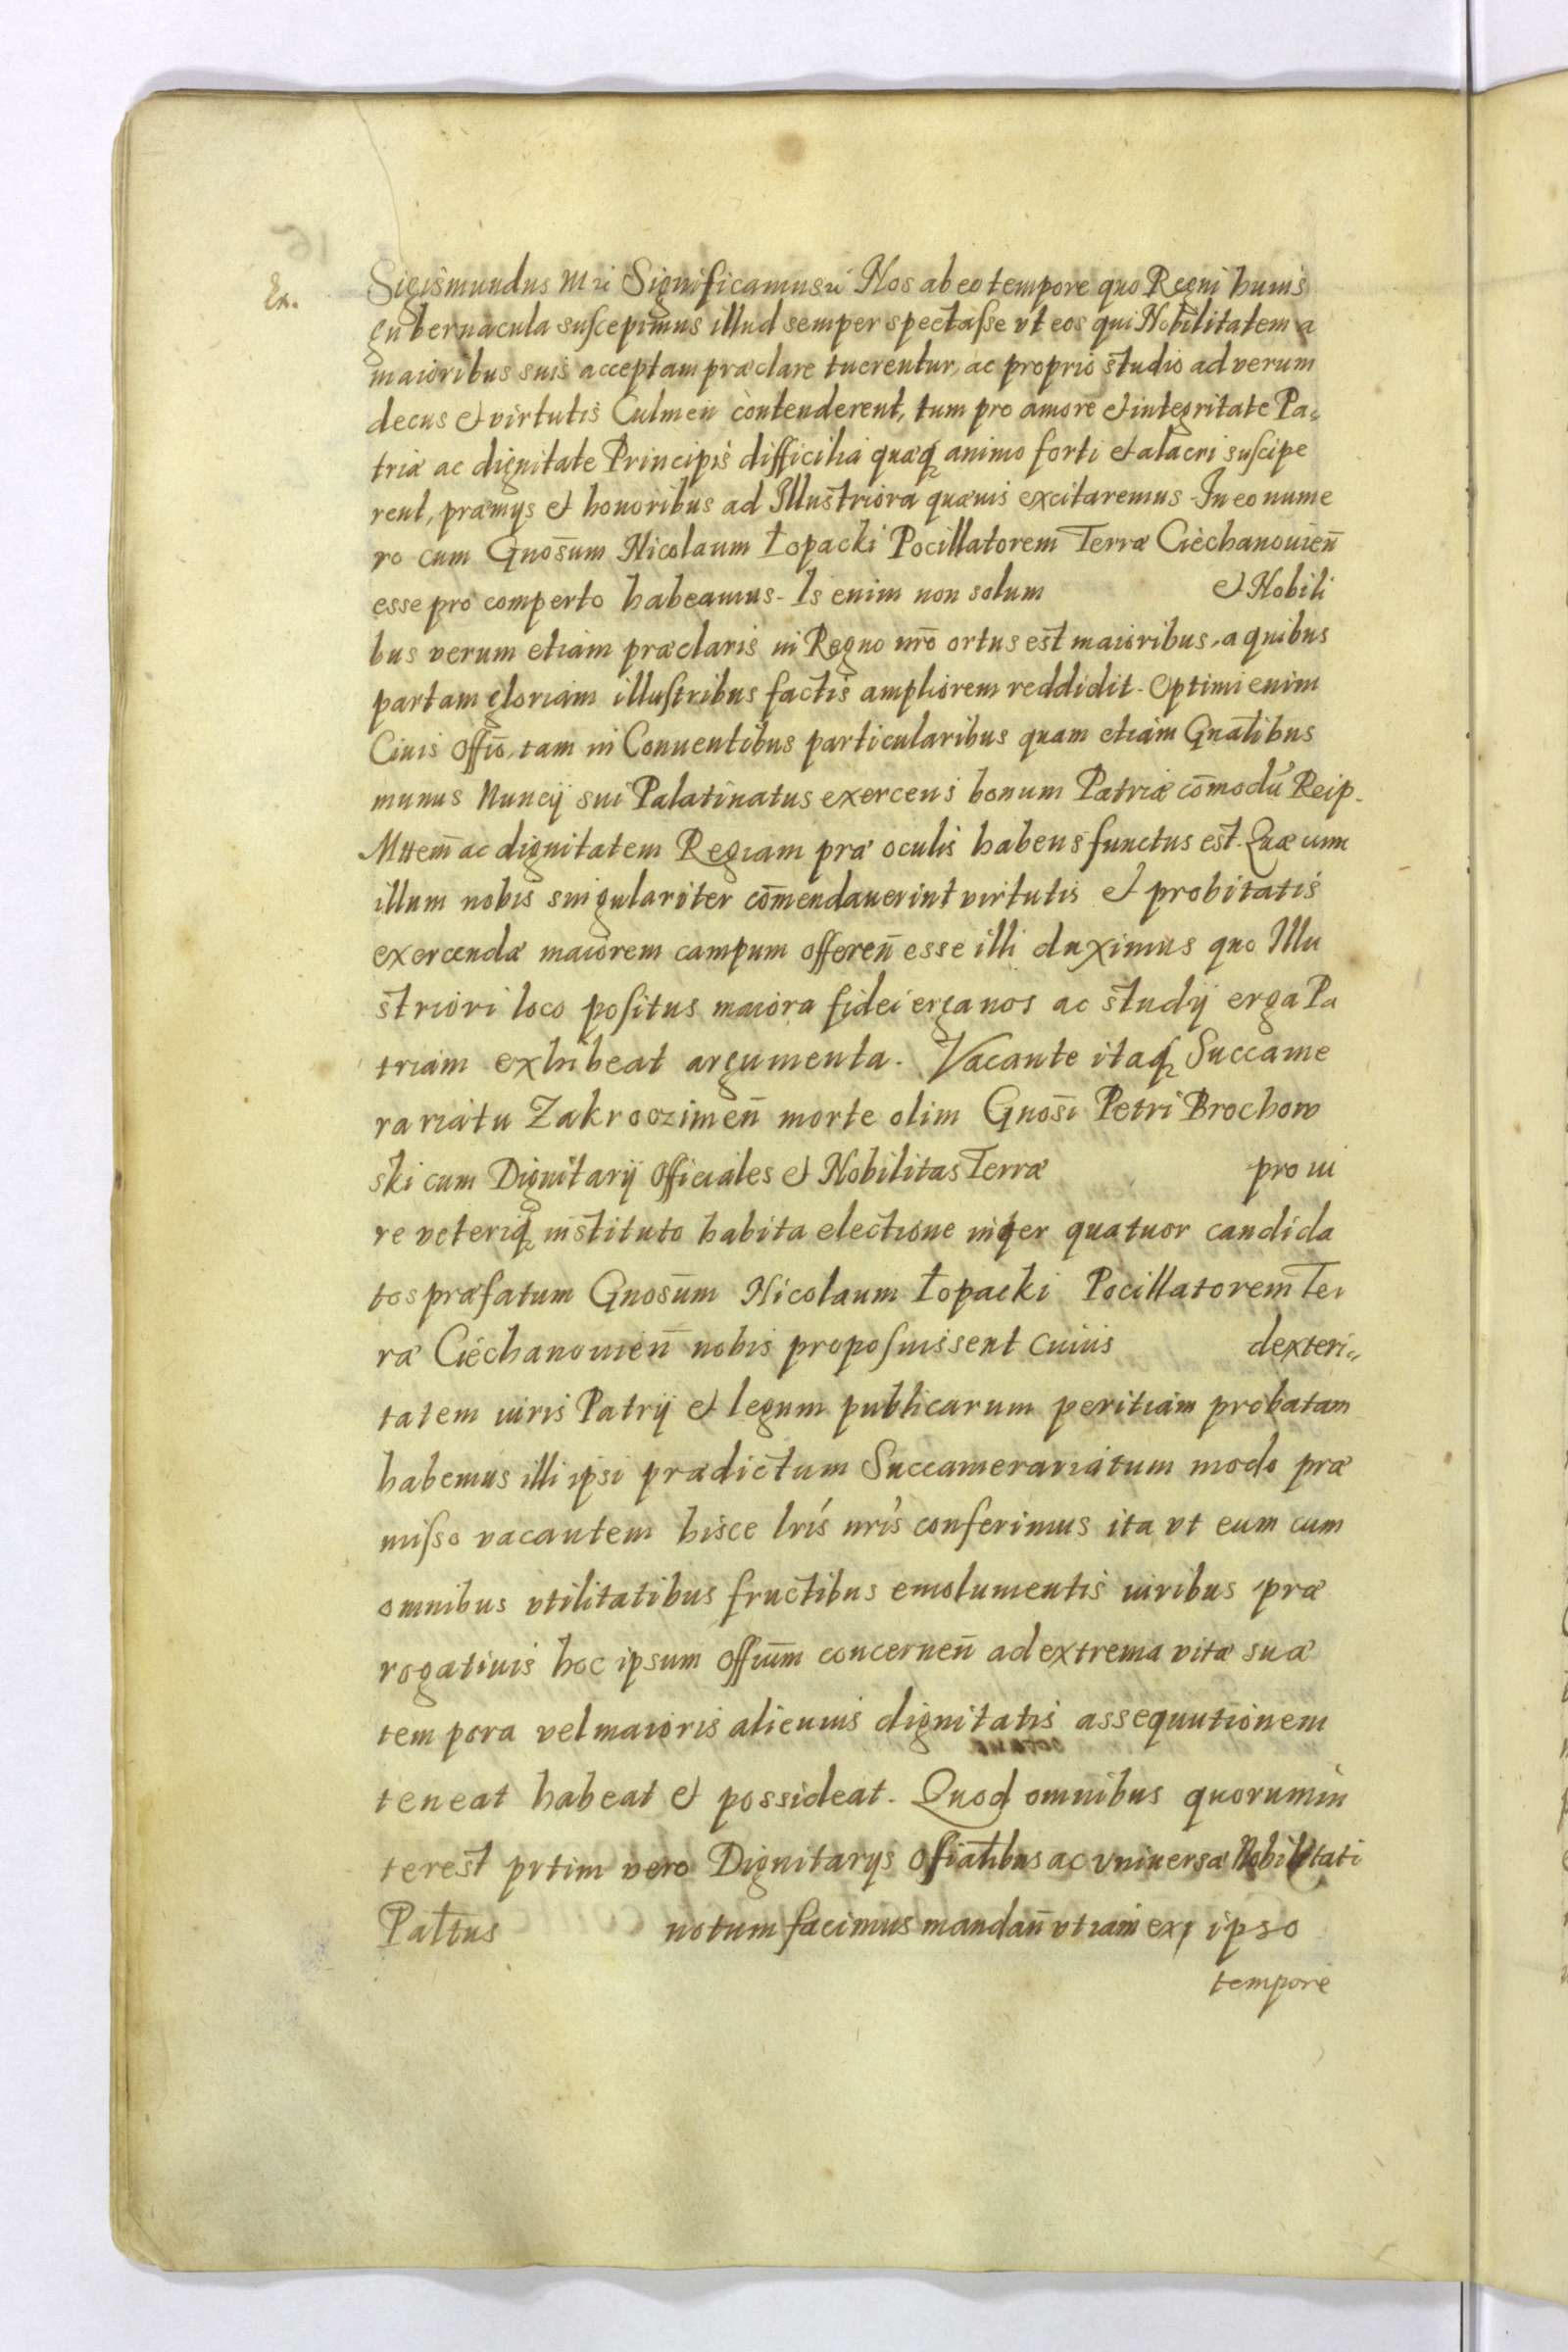 Ex.
Sigismundus m ꝛc Significamus ꝛc Nos ab eo tempore quo Regni huius
gubernacula suscepimus illud semper spectasse vt eos qui Nobilitatem a
maioribus suis acceptam præclare tuerentur, ac proprio studio ad verum
decus et virtutis Culmen contenderent, tum pro amore et integritate Pa=
triæ ac dignitate Principis difficilia quæq animo forti et alacri suscipe
rent, præmys et honoribus ad Illustriora quæuis excitaremus. In eo nume
ro cum Gnos̄um Nicolaum Łopacki Pocillatorem Terræ Ciechanouien̄
esse pro comperto habeamus. Is enim non solum et Nobili
bus verum etiam præclaris in Regno nr̄o ortus est maioribus, a quibus
partam gloriam illustribus factis ampliorem reddidit. Optimi enim
Ciuis Offi̅o, tam in Conuentibus particularibus quam etiam Gnalibus
munus Nuncij sui Palatinatus exercens bonum Patriæ com̄odū Reip.
Mttem̄ ac dignitatem Regiam præ oculis habens functus est. Quæ cum
illum nobis singulariter com̄endauerint virtutis et probitatis
exercendæ maiorem campum offeren̄ esse illi duximus quo Illu
striori loco positus maiora fidei erga nos ac studij erga Pa
triam exhibeat argumenta. Vacante itaq Succame
rariatu Zakroczimen̄ morte olim Gnos̄i Petri Brochow
ski cum Dignitarij Officiales et Nobilitas Terræ pro iu
re veteriq instituto habita electione inter quatuor candida
tos præfatum Gnos̄um Nicolaum Łopacki Pocillatorem Ter
ræ Ciechanouien̄ nobis proposuissent cuius dexteri=
tatem iuris Patrij et legum publicarum peritiam probatam
habemus illi ipsi prædictum Succamerariatum modo præ
misso vacantem hisce lris nris conferimus ita vt eum cum
omnibus vtilitatibus fructibus emolumentis iuribus præ
rogatiuis hoc ipsum Offiūm concernen̄ ad extrema vitæ suæ
tempora vel maioris alicuius dignitatis assequutionem
teneat habeat et possideat. Quod omnibus quorum in
terest prtim vero Dignitarys Offialibus ac vniuersæ Nobilitati
Paltus notum facimus mandan̄ vt iam ex ipso
tempore